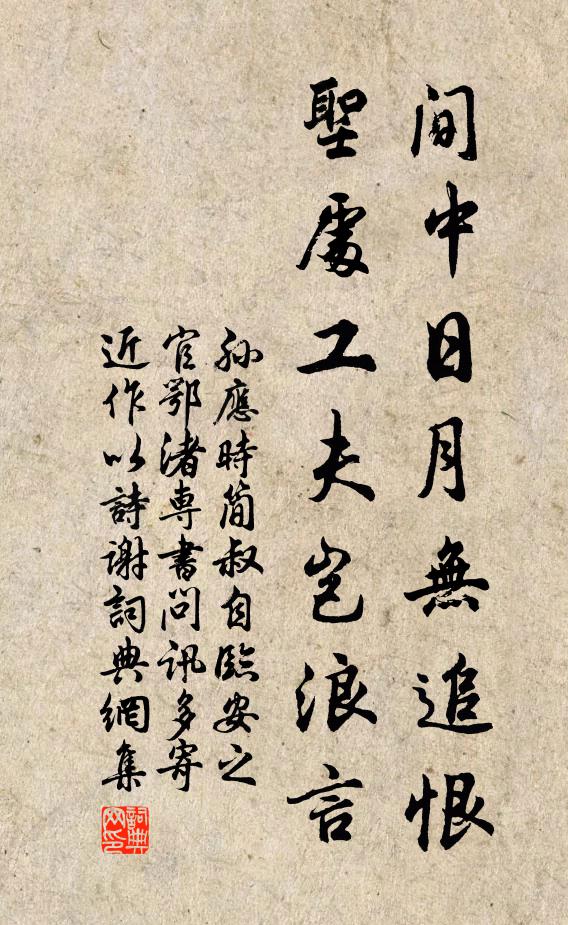 間中日月無追恨
聖處工夫豈浪言
孫應時簡叔自臨安之
官鄂渚專書問訊多寄
近作以詩謝詞典網集
詞典
网印